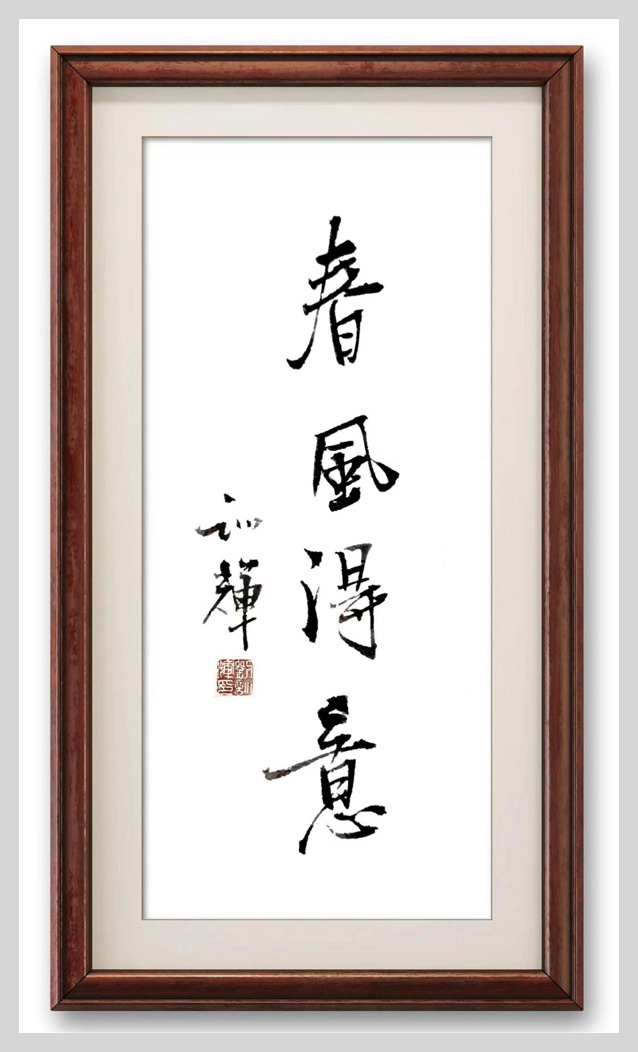 春風得意
訓輝